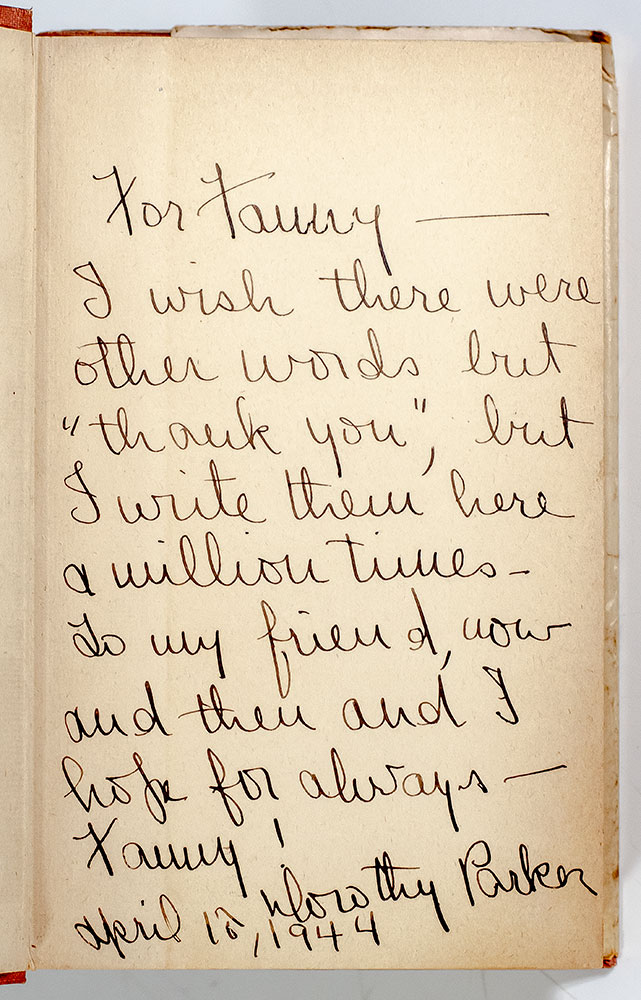 For Fanny —
I wish there were
other words but
"thank you", but
I write them here
a million times —
To my friend, now
and then and I
hope for always —
Fanny!
Dorothy Parker
April 15, 1944